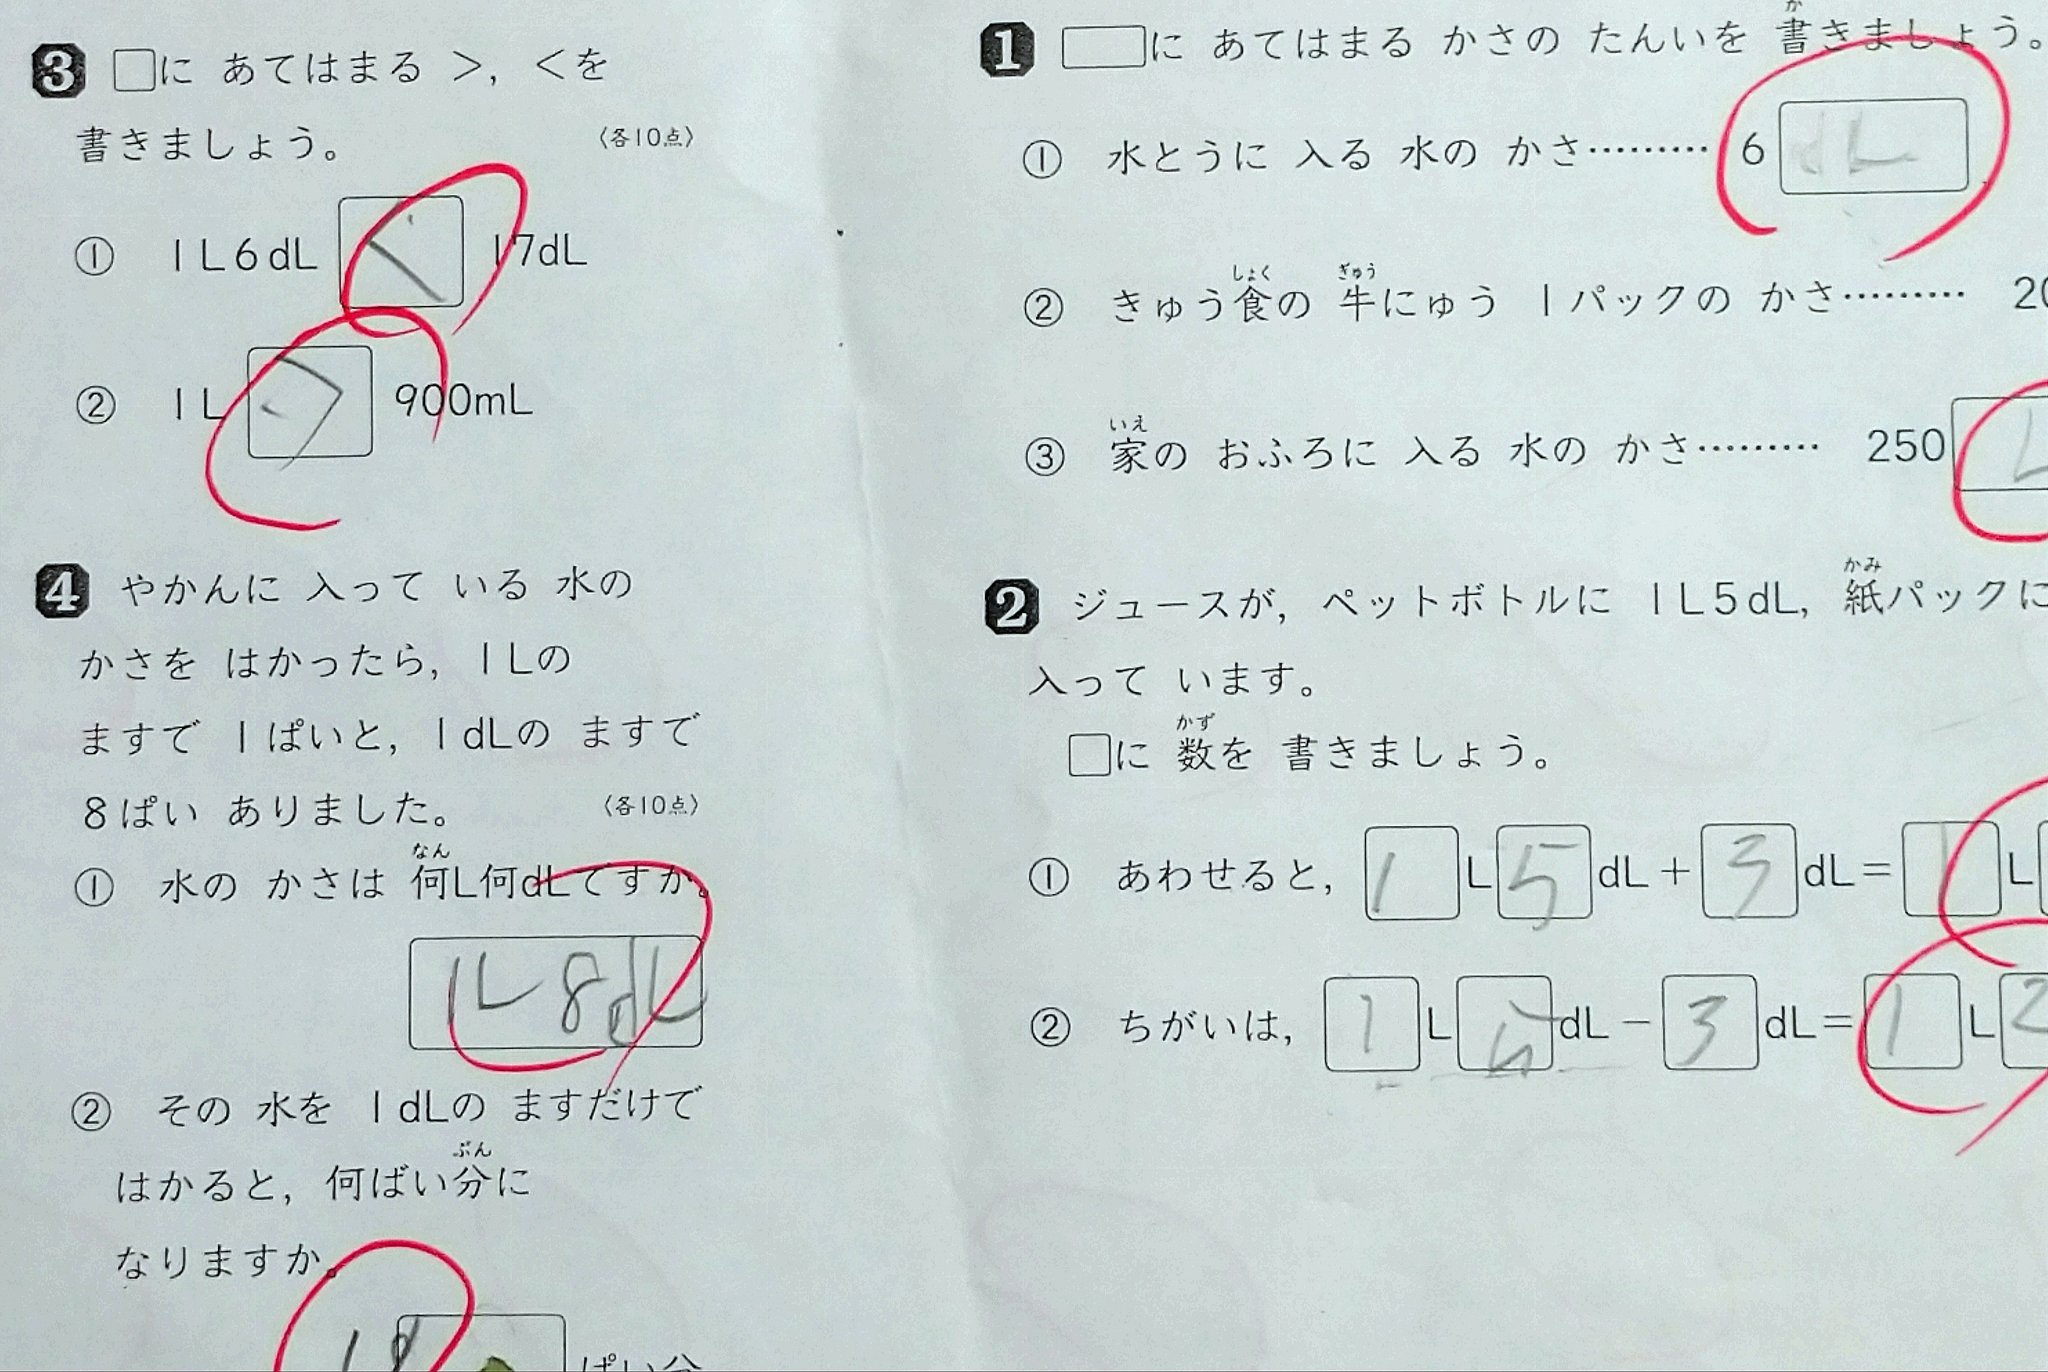 3 □に あてはまる >, <を
書きましょう。 〈各10点〉
① 1L6dL < 17dL
② 1L > 900mL
4 やかんに 入って いる 水の
かさを はかったら, 1Lの
ますで 1ぱいと, 1dLの ますで
8ぱい ありました。 〈各10点〉
なん
① 水の かさは 何L何dLですか。
1L 8dL
② その 水を 1dLの ますだけで
ぶん
はかると, 何ばい分に
なりますか。
ぱい分
か
1 □に あてはまる かさの たんいを 書きましょう。
① 水とうに 入る 水の かさ……… 6 dL
しょく ぎゅう
② きゅう食の 牛にゅう 1パックの かさ……… 20
いえ
③ 家の おふろに 入る 水の かさ……… 250 L
かみ
2 ジュースが, ペットボトルに 1L5dL, 紙パックに
入って います。
かず
□に 数を 書きましょう。
① あわせると, 1 L 5 dL + 3 dL = 1 L
② ちがいは, 1 L 5 dL − 3 dL = 1 L 2